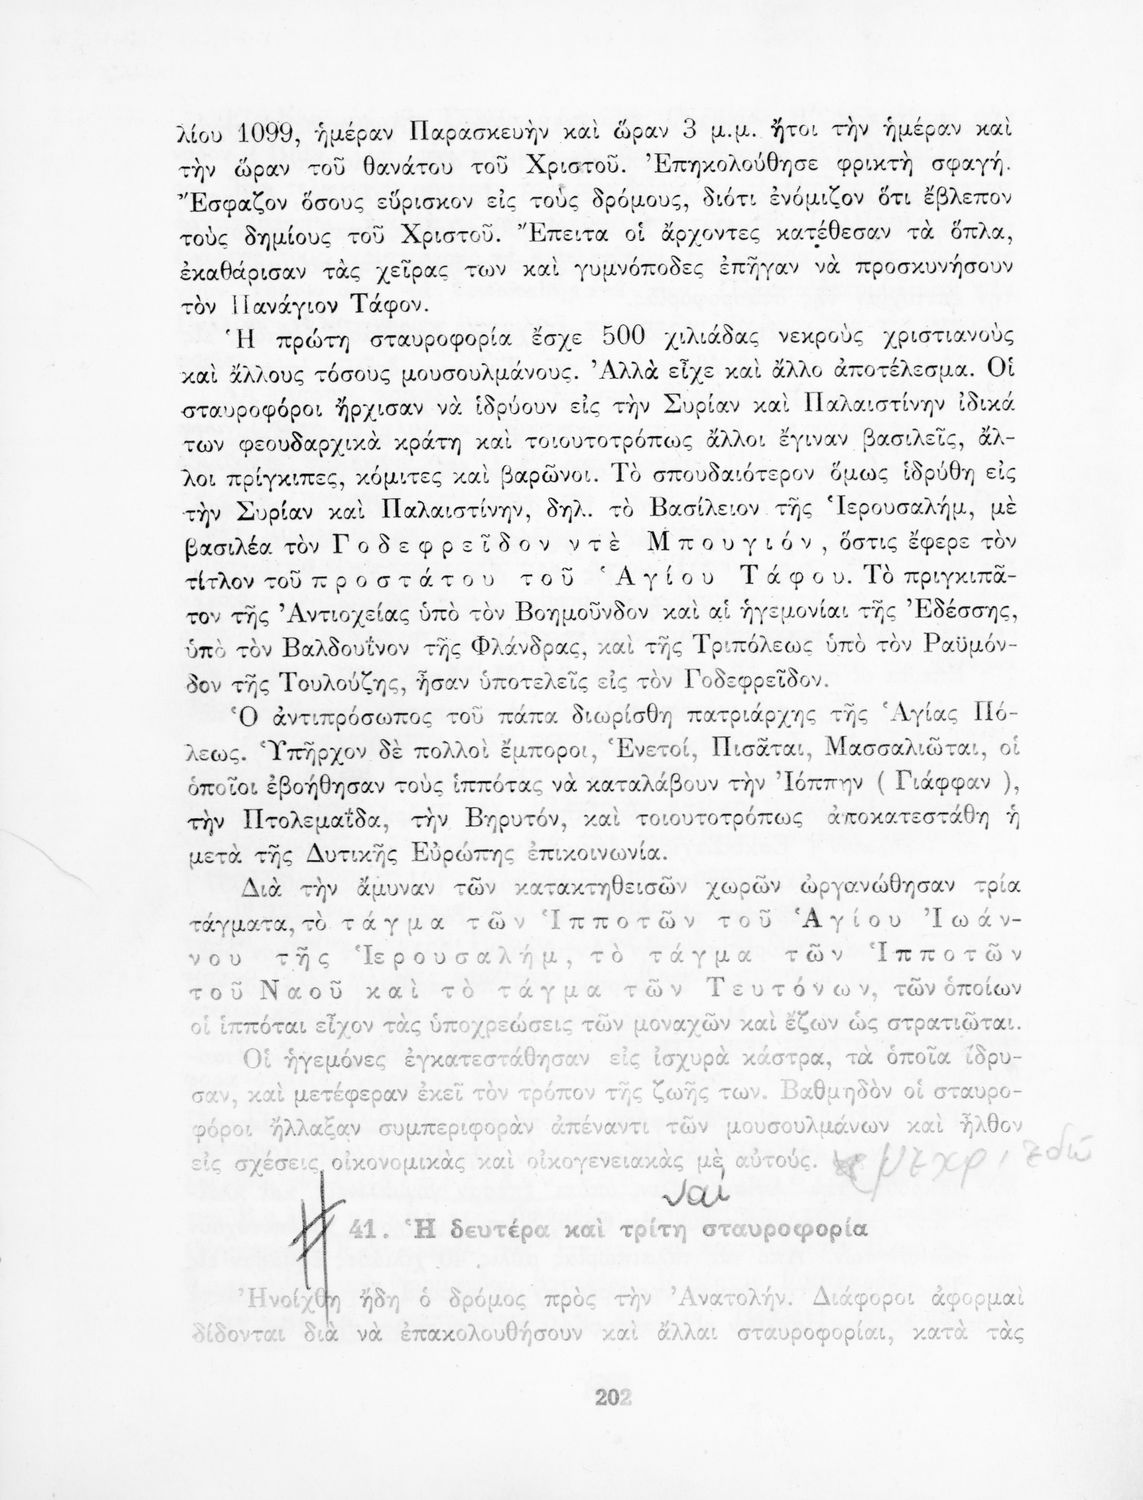 λίου 1099, ἡμέραν Παρασκευὴν καὶ ὥραν 3 μ.μ. ἤτοι τὴν ἡμέραν καὶ
τὴν ὥραν τοῦ θανάτου τοῦ Χριστοῦ. Ἐπηκολούθησε φρικτὴ σφαγή.
Ἔσφαζον ὅσους εὕρισκον εἰς τοὺς δρόμους, διότι ἐνόμιζον ὅτι ἔβλεπον
τοὺς δημίους τοῦ Χριστοῦ. Ἔπειτα οἱ ἄρχοντες κατέθεσαν τὰ ὅπλα,
ἐκαθάρισαν τὰς χεῖρας των καὶ γυμνόποδες ἐπῆγαν νὰ προσκυνήσουν
τὸν Πανάγιον Τάφον.
Ἡ πρώτη σταυροφορία ἔσχε 500 χιλιάδας νεκροὺς χριστιανοὺς
καὶ ἄλλους τόσους μουσουλμάνους. Ἀλλὰ εἶχε καὶ ἄλλο ἀποτέλεσμα. Οἱ
σταυροφόροι ἤρχισαν νὰ ἱδρύουν εἰς τὴν Συρίαν καὶ Παλαιστίνην ἰδικά
των φεουδαρχικὰ κράτη καὶ τοιουτοτρόπως ἄλλοι ἔγιναν βασιλεῖς, ἄλ-
λοι πρίγκιπες, κόμιτες καὶ βαρῶνοι. Τὸ σπουδαιότερον ὅμως ἱδρύθη εἰς
τὴν Συρίαν καὶ Παλαιστίνην, δηλ. τὸ Βασίλειον τῆς Ἱερουσαλήμ, μὲ
βασιλέα τὸν Γοδεφρεῖδον ντὲ Μπουγιόν, ὅστις ἔφερε τὸν
τίτλον τοῦ προστάτου τοῦ Ἁγίου Τάφου. Τὸ πριγκιπᾶ-
τον τῆς Ἀντιοχείας ὑπὸ τὸν Βοημοῦνδον καὶ αἱ ἡγεμονίαι τῆς Ἐδέσσης,
ὑπὸ τὸν Βαλδουῖνον τῆς Φλάνδρας, καὶ τῆς Τριπόλεως ὑπὸ τὸν Ραϋμόν-
δον τῆς Τουλούζης, ἦσαν ὑποτελεῖς εἰς τὸν Γοδεφρεῖδον.
Ὁ ἀντιπρόσωπος τοῦ πάπα διωρίσθη πατριάρχης τῆς Ἁγίας Πό-
λεως. Ὑπῆρχον δὲ πολλοὶ ἔμποροι, Ἑνετοί, Πισᾶται, Μασσαλιῶται, οἱ
ὁποῖοι ἐβοήθησαν τοὺς ἱππότας νὰ καταλάβουν τὴν Ἰόππην ( Γιάφφαν ),
τὴν Πτολεμαΐδα, τὴν Βηρυτόν, καὶ τοιουτοτρόπως ἀποκατεστάθη ἡ
μετὰ τῆς Δυτικῆς Εὐρώπης ἐπικοινωνία.
Διὰ τὴν ἄμυναν τῶν κατακτηθεισῶν χωρῶν ὠργανώθησαν τρία
τάγματα, τὸ τάγμα τῶν Ἱπποτῶν τοῦ Ἁγίου Ἰωάν-
νου τῆς Ἱερουσαλήμ, τὸ τάγμα τῶν Ἱπποτῶν
τοῦ Ναοῦ καὶ τὸ τάγμα τῶν Τευτόνων, τῶν ὁποίων
οἱ ἱππόται εἶχον τὰς ὑποχρεώσεις τῶν μοναχῶν καὶ ἔζων ὡς στρατιῶται.
Οἱ ἡγεμόνες ἐγκατεστάθησαν εἰς ἰσχυρὰ κάστρα, τὰ ὁποῖα ἵδρυ-
σαν, καὶ μετέφεραν ἐκεῖ τὸν τρόπον τῆς ζωῆς των. Βαθμηδὸν οἱ σταυρο-
φόροι ἤλλαξαν συμπεριφορὰν ἀπέναντι τῶν μουσουλμάνων καὶ ἦλθον
εἰς σχέσεις οἰκονομικὰς καὶ οἰκογενειακὰς μὲ αὐτούς. μεχρι εδώ
ναί
41. Ἡ δευτέρα καὶ τρίτη σταυροφορία
Ἠνοίχθη ἤδη ὁ δρόμος πρὸς τὴν Ἀνατολήν. Διάφοροι ἀφορμαὶ
δίδονται διὰ νὰ ἐπακολουθήσουν καὶ ἄλλαι σταυροφορίαι, κατὰ τὰς
202